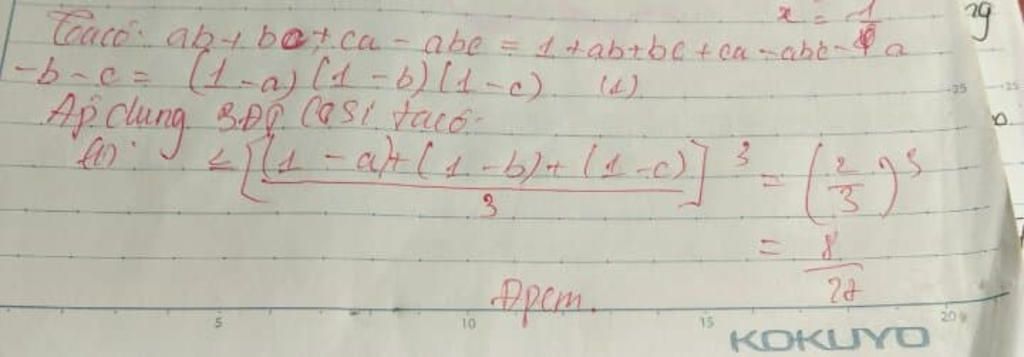 x = 1
29
Ta có: ab + bc + ca - abc = 1 + ab + bc + ca - abc - a
- b - c = (1 - a) (1 - b) (1 - c) (1)
Áp dụng BĐT Cosi ta có:
(1) ≤ [((1 - a) + (1 - b) + (1 - c))/3]^3 = (2/3)^3
= 8/27
Đpcm.
5 10 15 20
KOKUYO